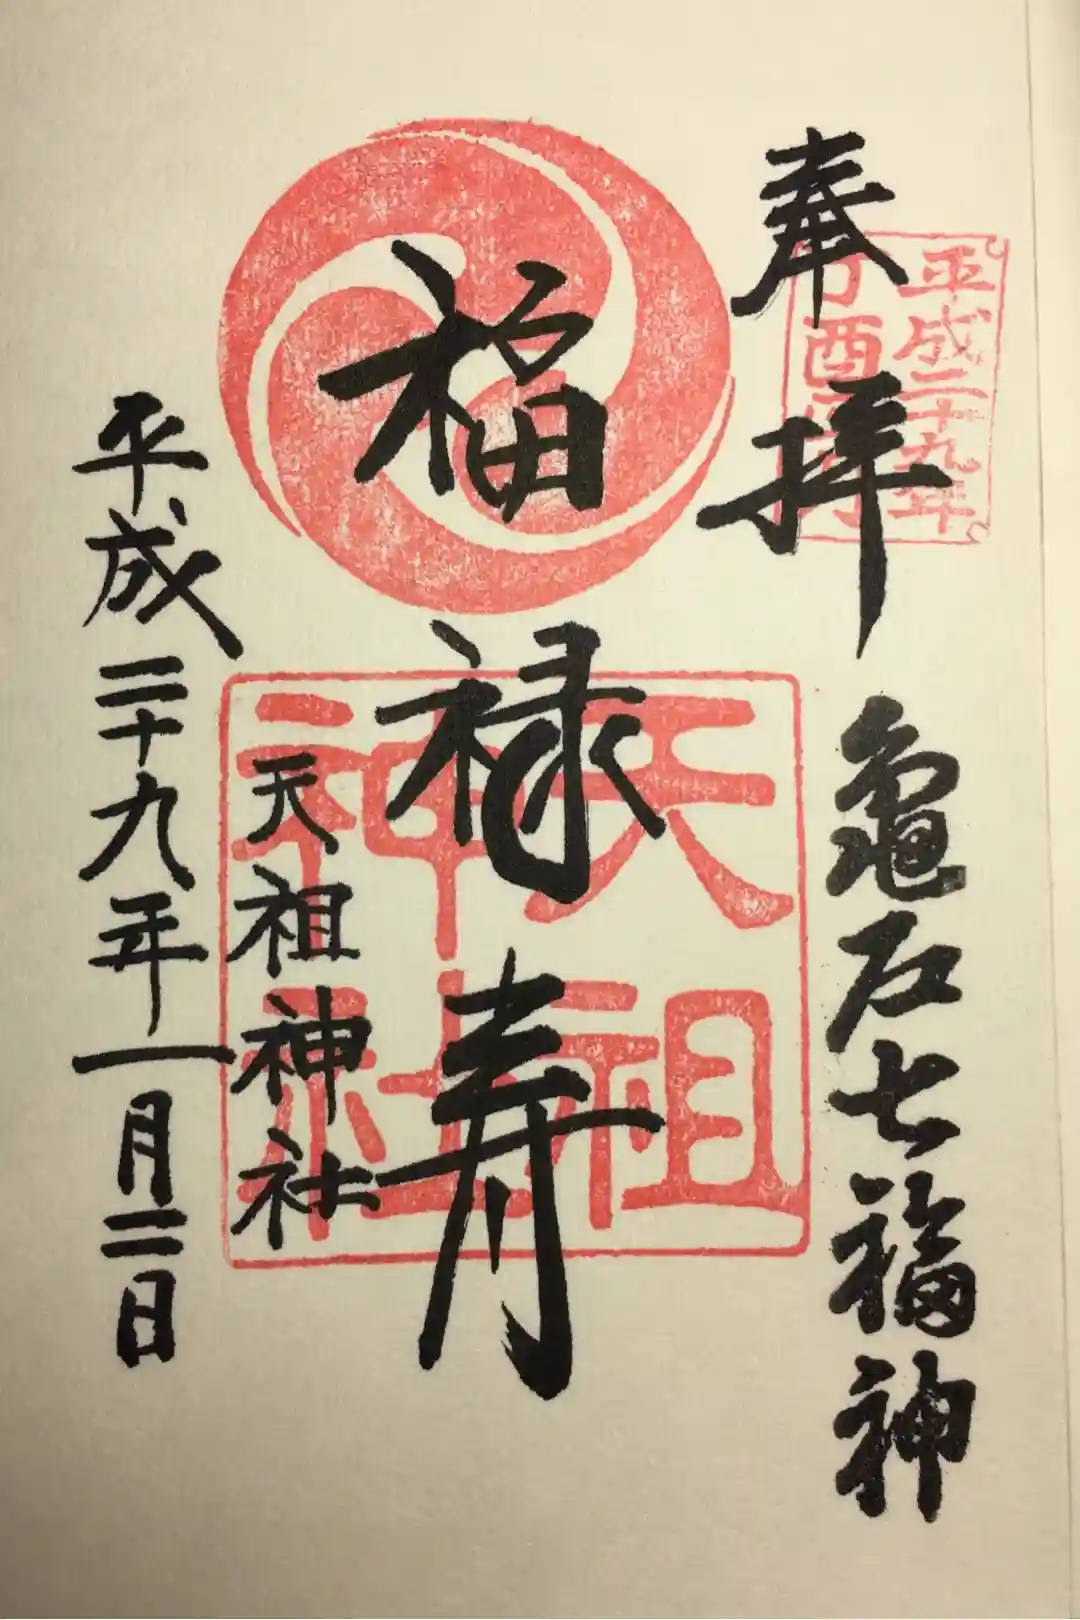 奉拝
平成二十九年
丁酉
亀戸七福神
福禄寿
天祖神社
天祖神社
平成二十九年一月二日